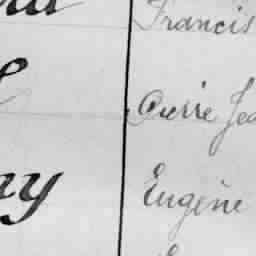 Francis
Pierre Jea
ny Eugène